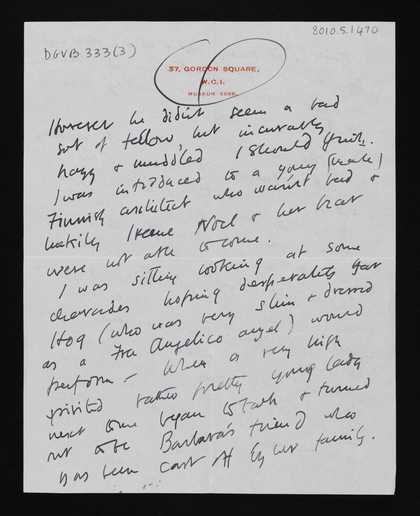 DGVB 333(3)
8010.5.1470
37, GORDON SQUARE,
W.C.1.
MUSEUM
However he didn't seem a bad
sort of fellow but incurably
hazy & muddled I should think.
I was introduced to a young (male)
Finnish architect who wasn't bad &
luckily Irene Noel & her brat
were not able to come.
I was sitting looking at some
charades hoping desperately that
Hog (who was very slim & dressed
as a Fra Angelico angel) would
perform – when a very high
spirited rather pretty young lady
next to me began to talk & turned
out to be Barbara's friend who
has been cast off by her family.